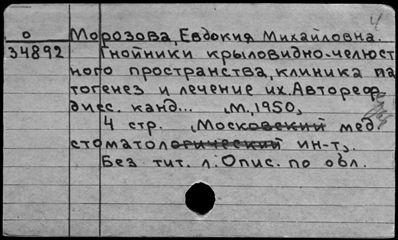 4
о Морозова, Евдокия Михайловна.
34892 Гнойники крыловидно-челюст
ного пространства, клиника па
тогенез и лечение их. Автореф.
дисс. канд... , М., 1950,
4 стр. , Московский мед.
стоматологический ин-т,.
Без тит. л. Опис. по обл.